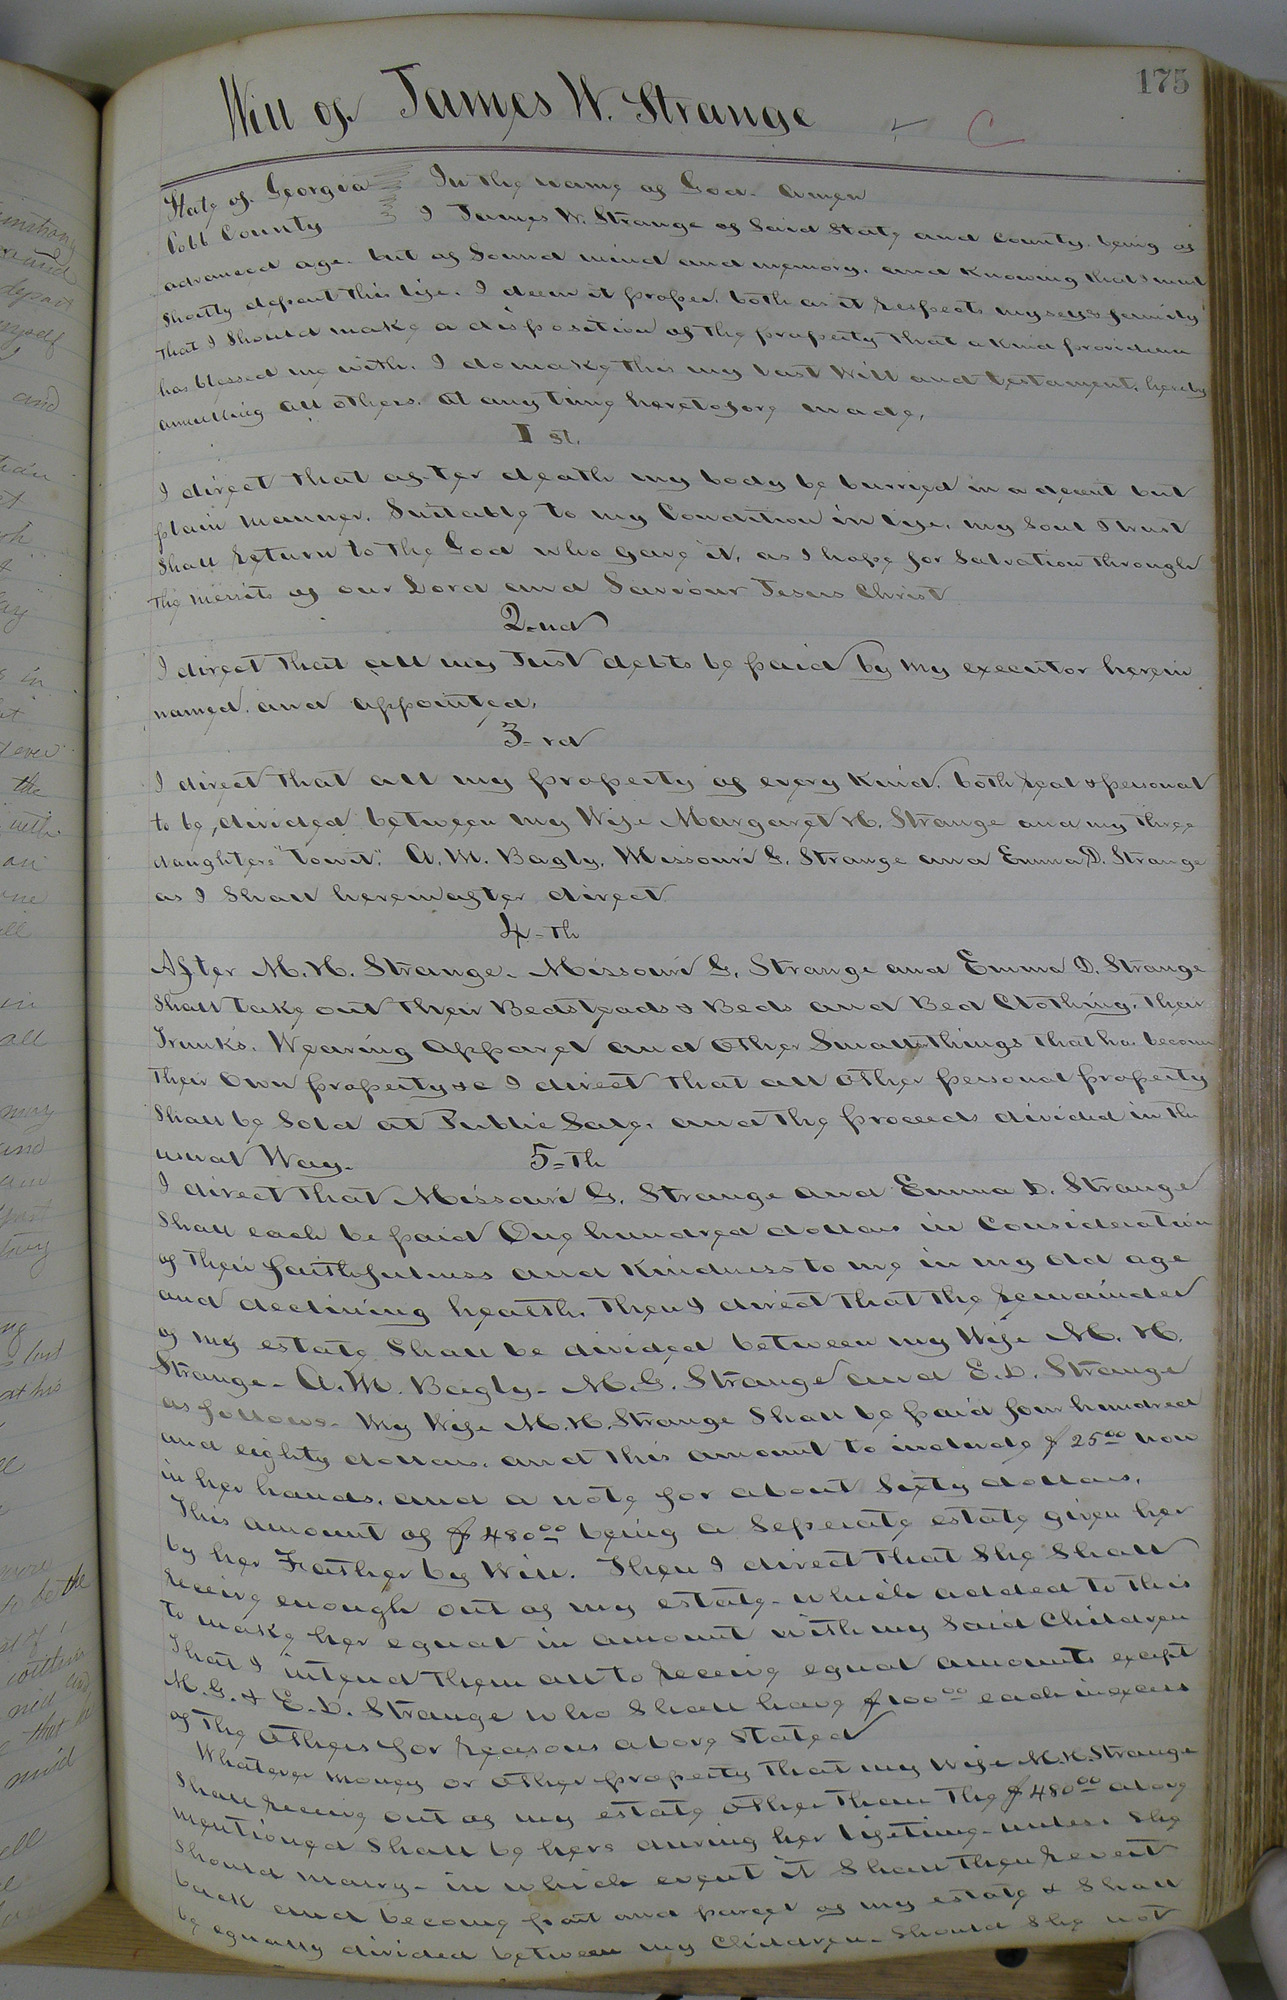 175
Will of James W. Strange
State of Georgia In the name of God. Amen
Cobb County I James W. Strange of Said State and County. being of
advanced age. but of Sound mind and memory. and Knowing that I must
Shortly depart this life. I deem it proper. both as it respects myself & family
that I Should make a disposition of the property that a Kind providence
has blessed me with. I do make this my last Will and testament, hereby
annulling all others. at any time heretofore made.
1st.
I direct that after death my body be burried in a decent but
plain manner. Suitable to my Condition in life. my Soul I trust
Shall return to the God who gave it, as I hope for Salvation through
the merrits of our Lord and Saviour Jesus Christ
2-nd
I direct that all my Just debts be paid by my executor herein
named. and appointed.
3-rd
I direct that all my property of every Kind. both real & personal
to be, divided between my Wife Margaret H. Strange and my three
daughters "towit". A. M. Bagly, Missouri G. Strange and Emma D. Strange
as I Shall hereinafter direct
4-th
After M. H. Strange. Missouri G. Strange and Emma D. Strange
Shall take out their Bedsteads & Beds and Bed Clothing, their
Trunks. Wearing apparel and other Smaller things that has become
their own property &c I direct that all other personal property
Shall be Sold at Public Sale, and the proceeds divided in the
usual Way. 5-th
I direct that Missouri G. Strange and Emma D. Strange
Shall each be paid One hundred dollars in Consideration
of their faithfulness and Kindness to me in my old age
and declining health. Then I direct that the remainder
of my estate Shall be divided between my Wife M. H.
Strange- A. M. Bagly- M. G. Strange and E. D. Strange
as follows- My Wife M. H. Strange Shall be paid four hundred
and eighty dollars. and this amount to include $25.00 now
in her hands, and a note for about Sixty dollars.
This amount of $480.00 being a Seperate estate given her
by her Father by Will. Then I direct that She Shall
receive enough out of my estate- which added to this
to make her equal in amount with my Said Children
That I intend them all to receive equal amounts except
M. G. & E. D. Strange who Shall have $100.00 each in excess
of the others for reasons above Stated
Whatever money or other property that my Wife M. H. Strange
Shall receive out of my estate other than the $480.00 above
mentioned Shall be hers during her lifetime- unless She
Should marry- in which event it Shall then revert
back and become part and parcel of my estate & Shall
be equally divided between my Children- Should She not